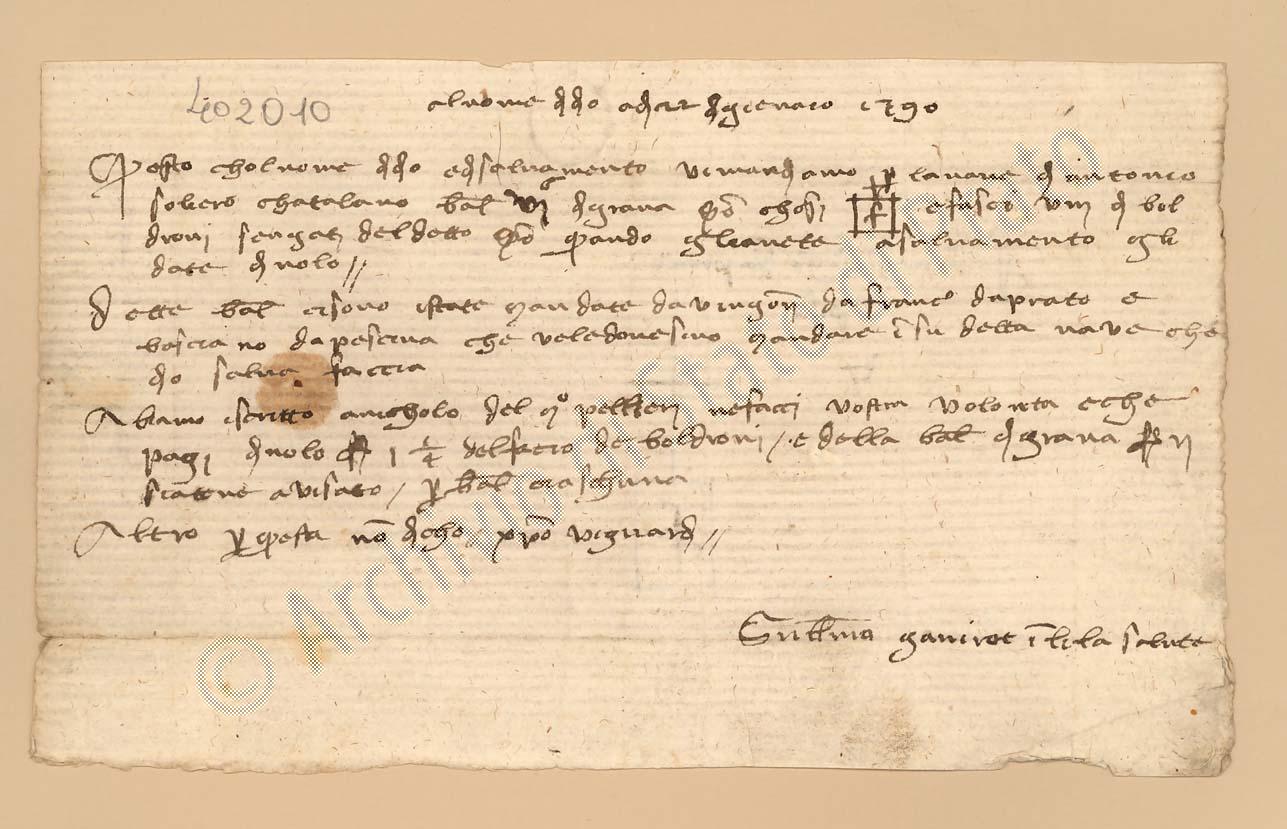 402010
al nome di dio a di 12 di genaio 1390
Questo chol nome di dio e di salvamento vi mandiamo per la nave d antonio
soliero chatalano bal VI di grana segnio chosi e fasci VIII di bol
droni sengati del detto segnio quando gli avete a salvamento gli
date di nolo //
Dette bal ci sono istate mandate da vingone da franc° da prato e
basciano da pescina che ve le dovesino mandare i su detta nave che
dio salva faccia
Abiamo iscritto a nicholo del m° pelliteri ne facci vostra volonta e che
paghi di nolo f 1 1/4 del facio de boldroni / e della bal di grana f II
siatene avisato / per bal ciaschuna
Altro per questa non dicho / xpo vi guardi //
ganirot i la salute
© Archivio di Stato di Prato